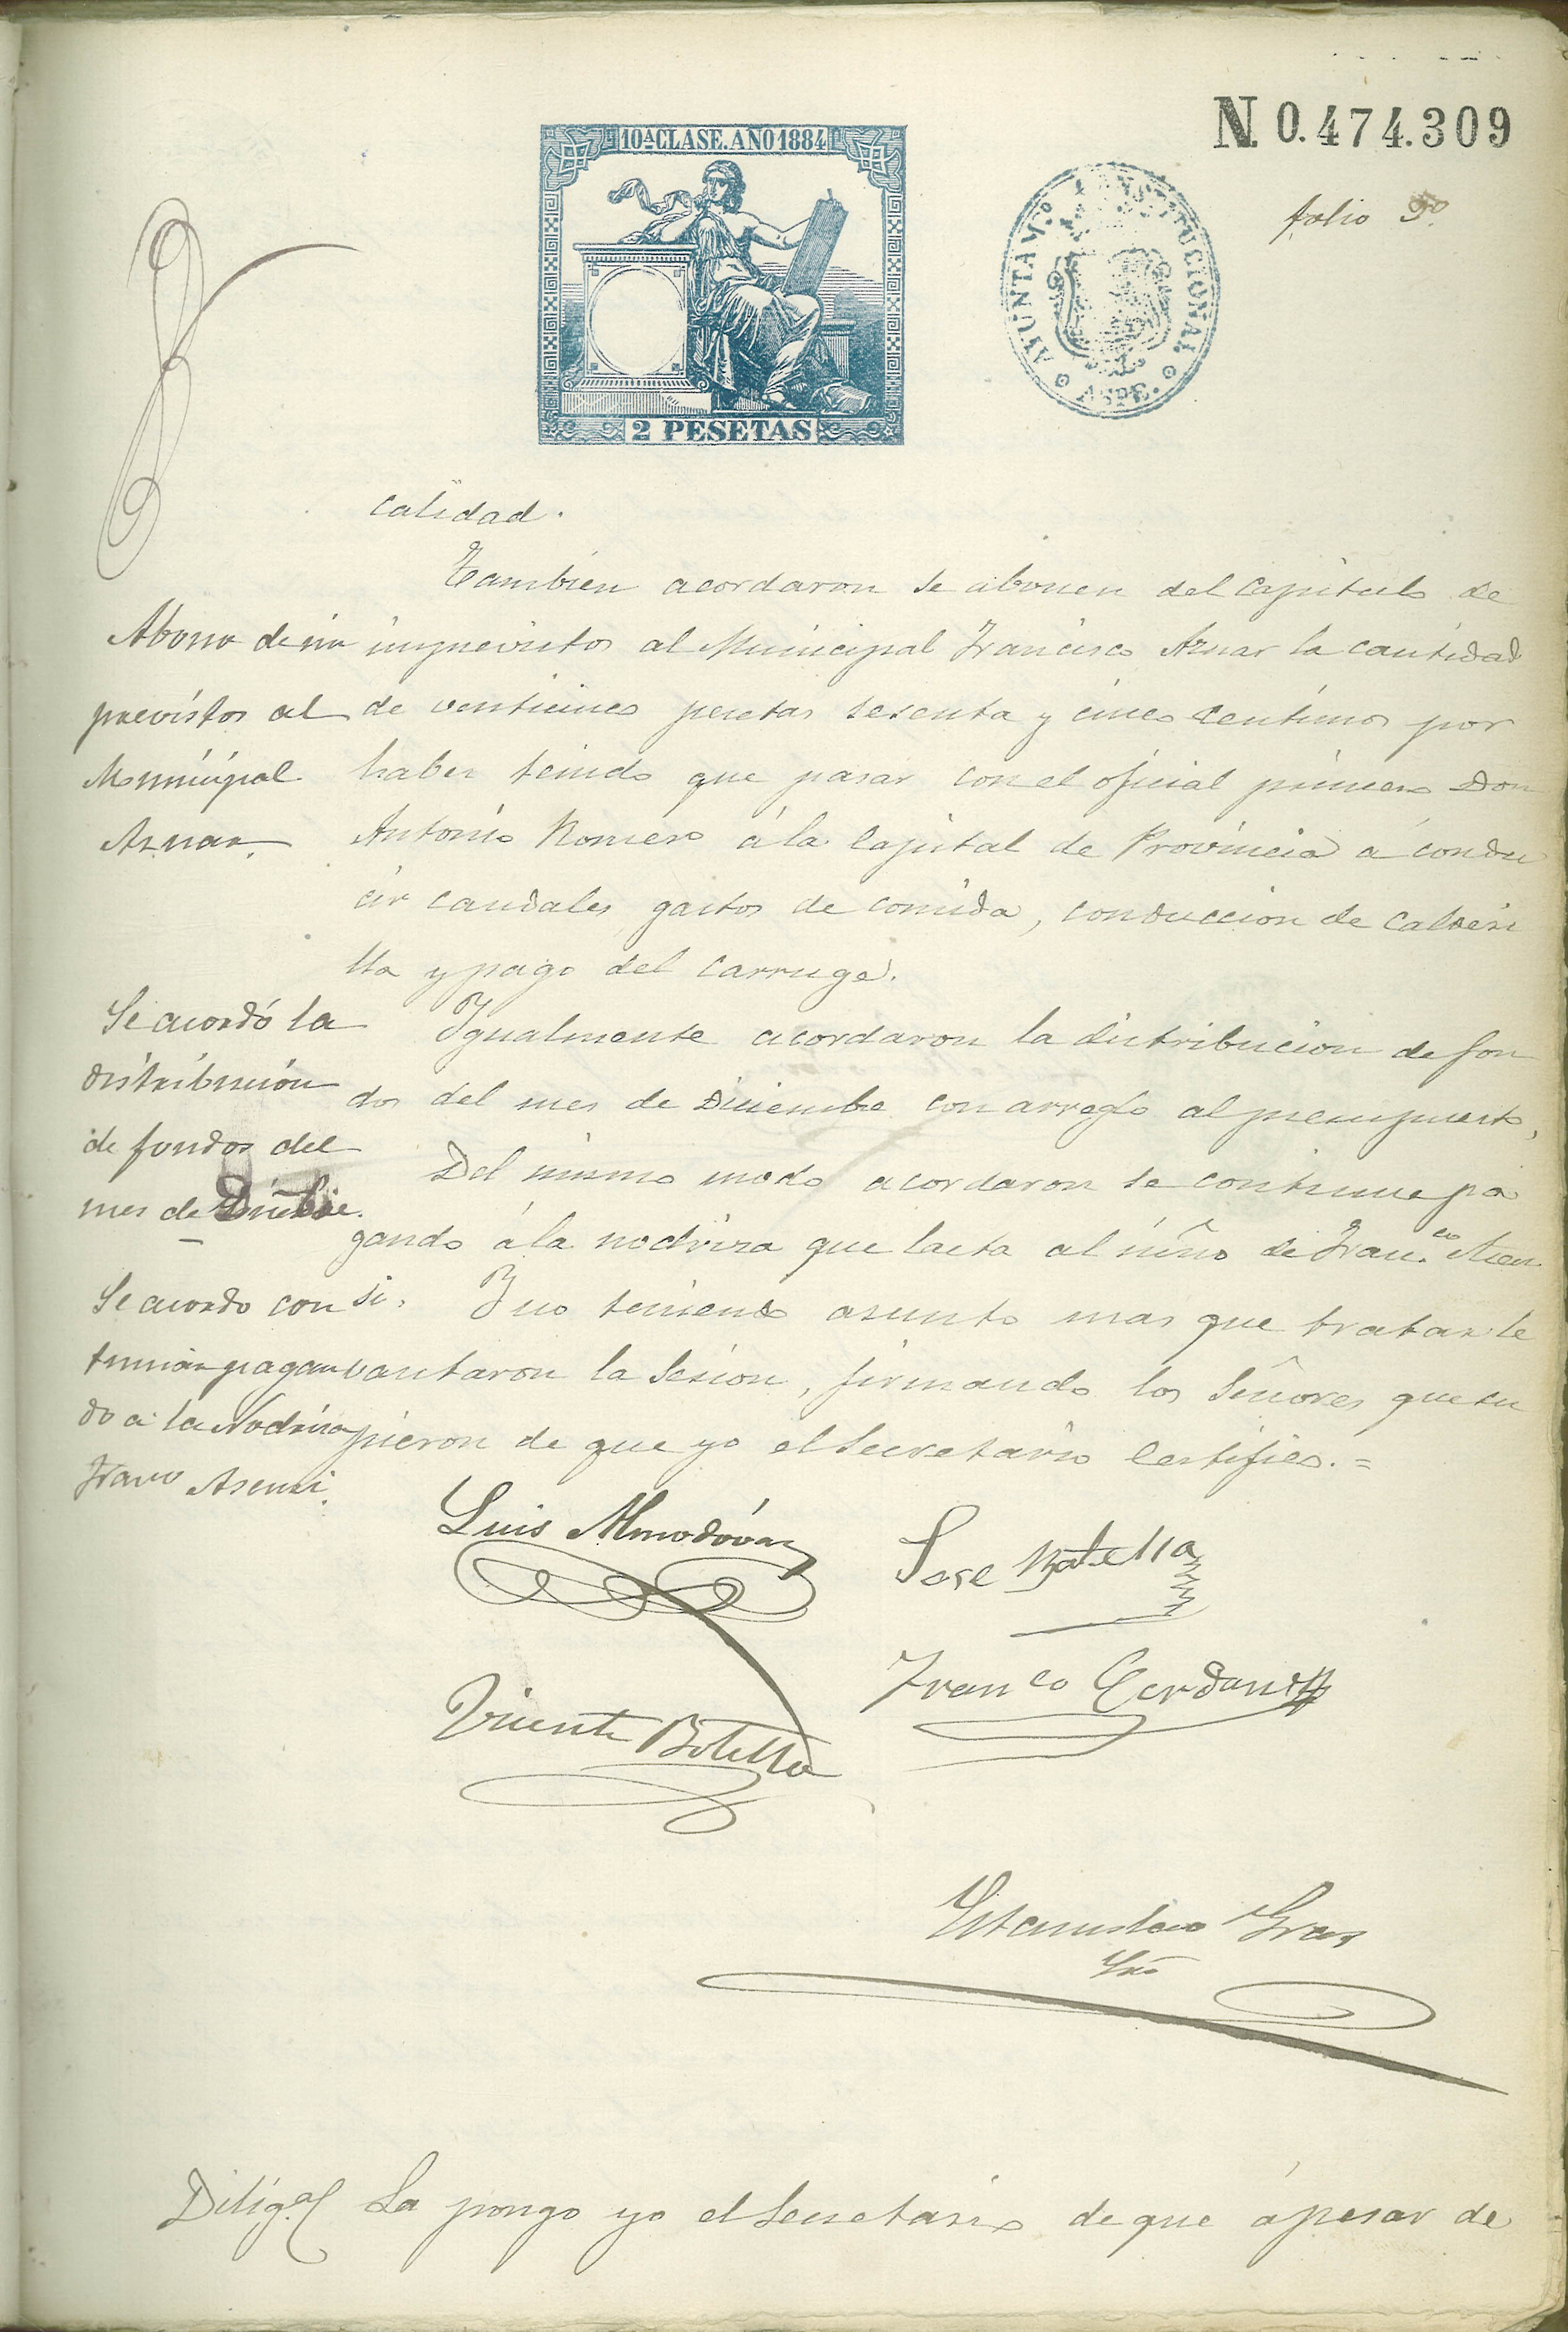 N. 0.474.309
10ª CLASE. AÑO 1884
2 PESETAS
AYUNTAMTº CONSTITUCIONAL
ASPE.
folio
calidad.
Tambien acordaron se abonen del Capitulo de
imprevistos al Municipal Francisco Aznar la cantidad
de venticinco pesetas sesenta y cinco centimos por
haber tenido que pasar con el oficial primero Don
Antonio Romero á la Capital de Provincia á condu
cir caudales, gastos de comida, conduccion de calderi
lla y pago del carruage.
Igualmente acordaron la distribucion de fon
dos del mes de Diciembre con arreglo al presupuesto,
Del mismo modo acordaron se continue pa
gando á la nodriza que lacta al niño de Fran.co Asen
si. Y no teniendo asunto mas que tratar le
vantaron la Sesion, firmando los Señores que su
pieron de que yo el Secretario Certifico.=
Abono de im
previstos al
Municipal
Aznar.
Se acordó la
distribución
de fondos del
mes de Dicbre.
Se acordo con
tinuar pagan
do a la Nodriza
Franco Asensi.
Luis Almodóvar
Jose Botella
Vicente Botella
Franco Cerdan
Estanislao Gras
Srio
Dilig.a La pongo yo el Secretario de que á pesar de